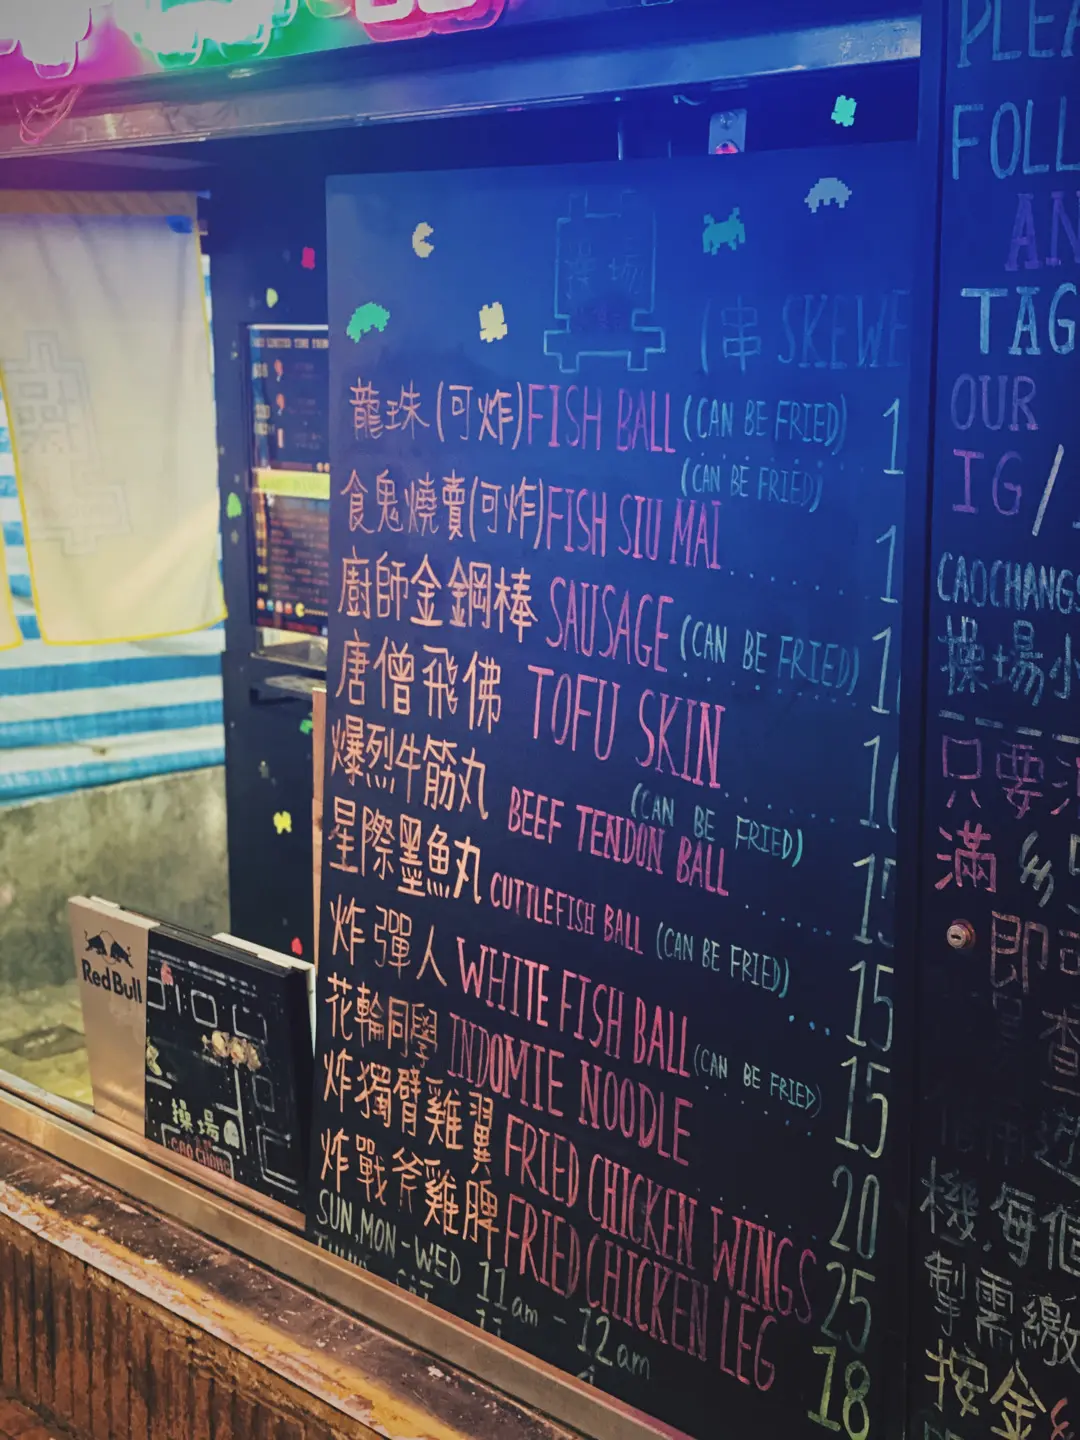 操場
(串 SKEWE
龍珠 (可炸) FISH BALL (CAN BE FRIED) 1
(CAN BE FRIED)
食鬼燒賣(可炸) FISH SIU MAI 1
廚師金鋼棒 SAUSAGE (CAN BE FRIED) 1
唐僧飛佛 TOFU SKIN 1
(CAN BE FRIED)
爆烈牛筋丸 BEEF TENDON BALL 15
星際墨魚丸 CUTTLEFISH BALL (CAN BE FRIED) 15
炸彈人 WHITE FISH BALL (CAN BE FRIED) 15
花輪同學 INDOMIE NOODLE 20
炸獨臂雞翼 FRIED CHICKEN WINGS 25
炸戰斧雞脾 FRIED CHICKEN LEG 18
SUN, MON - WED 11am - 12am
Red Bull
操場
CAO CHANG
PLEA
FOLL
AN
TAG
OUR
IG/
CAOCHANGS
操場小
只要
滿
即
查
機, 每個
掣需繳
按金